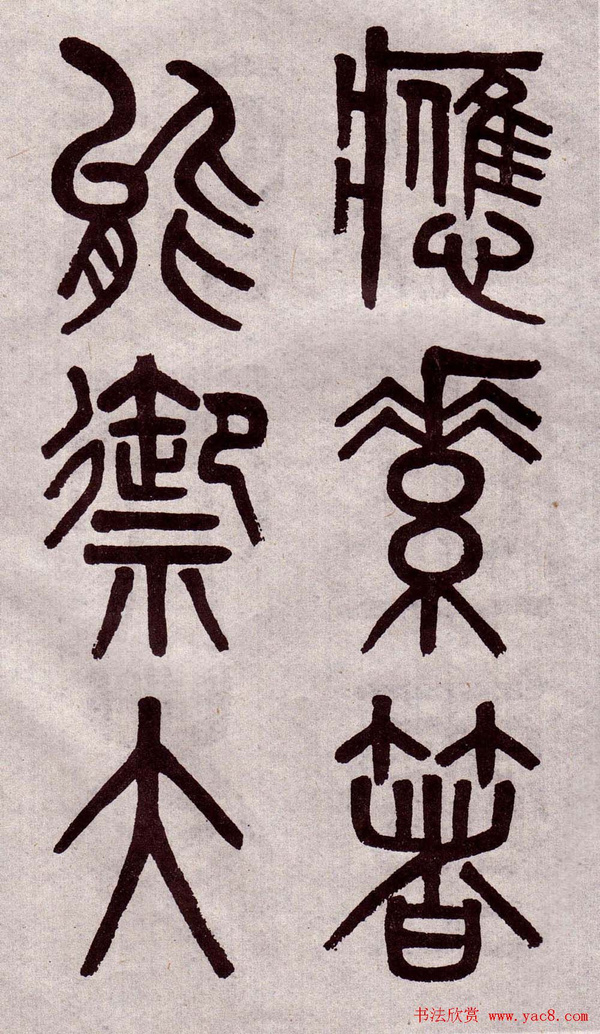 應素著
能禦大
书法欣赏 www.yac8.com